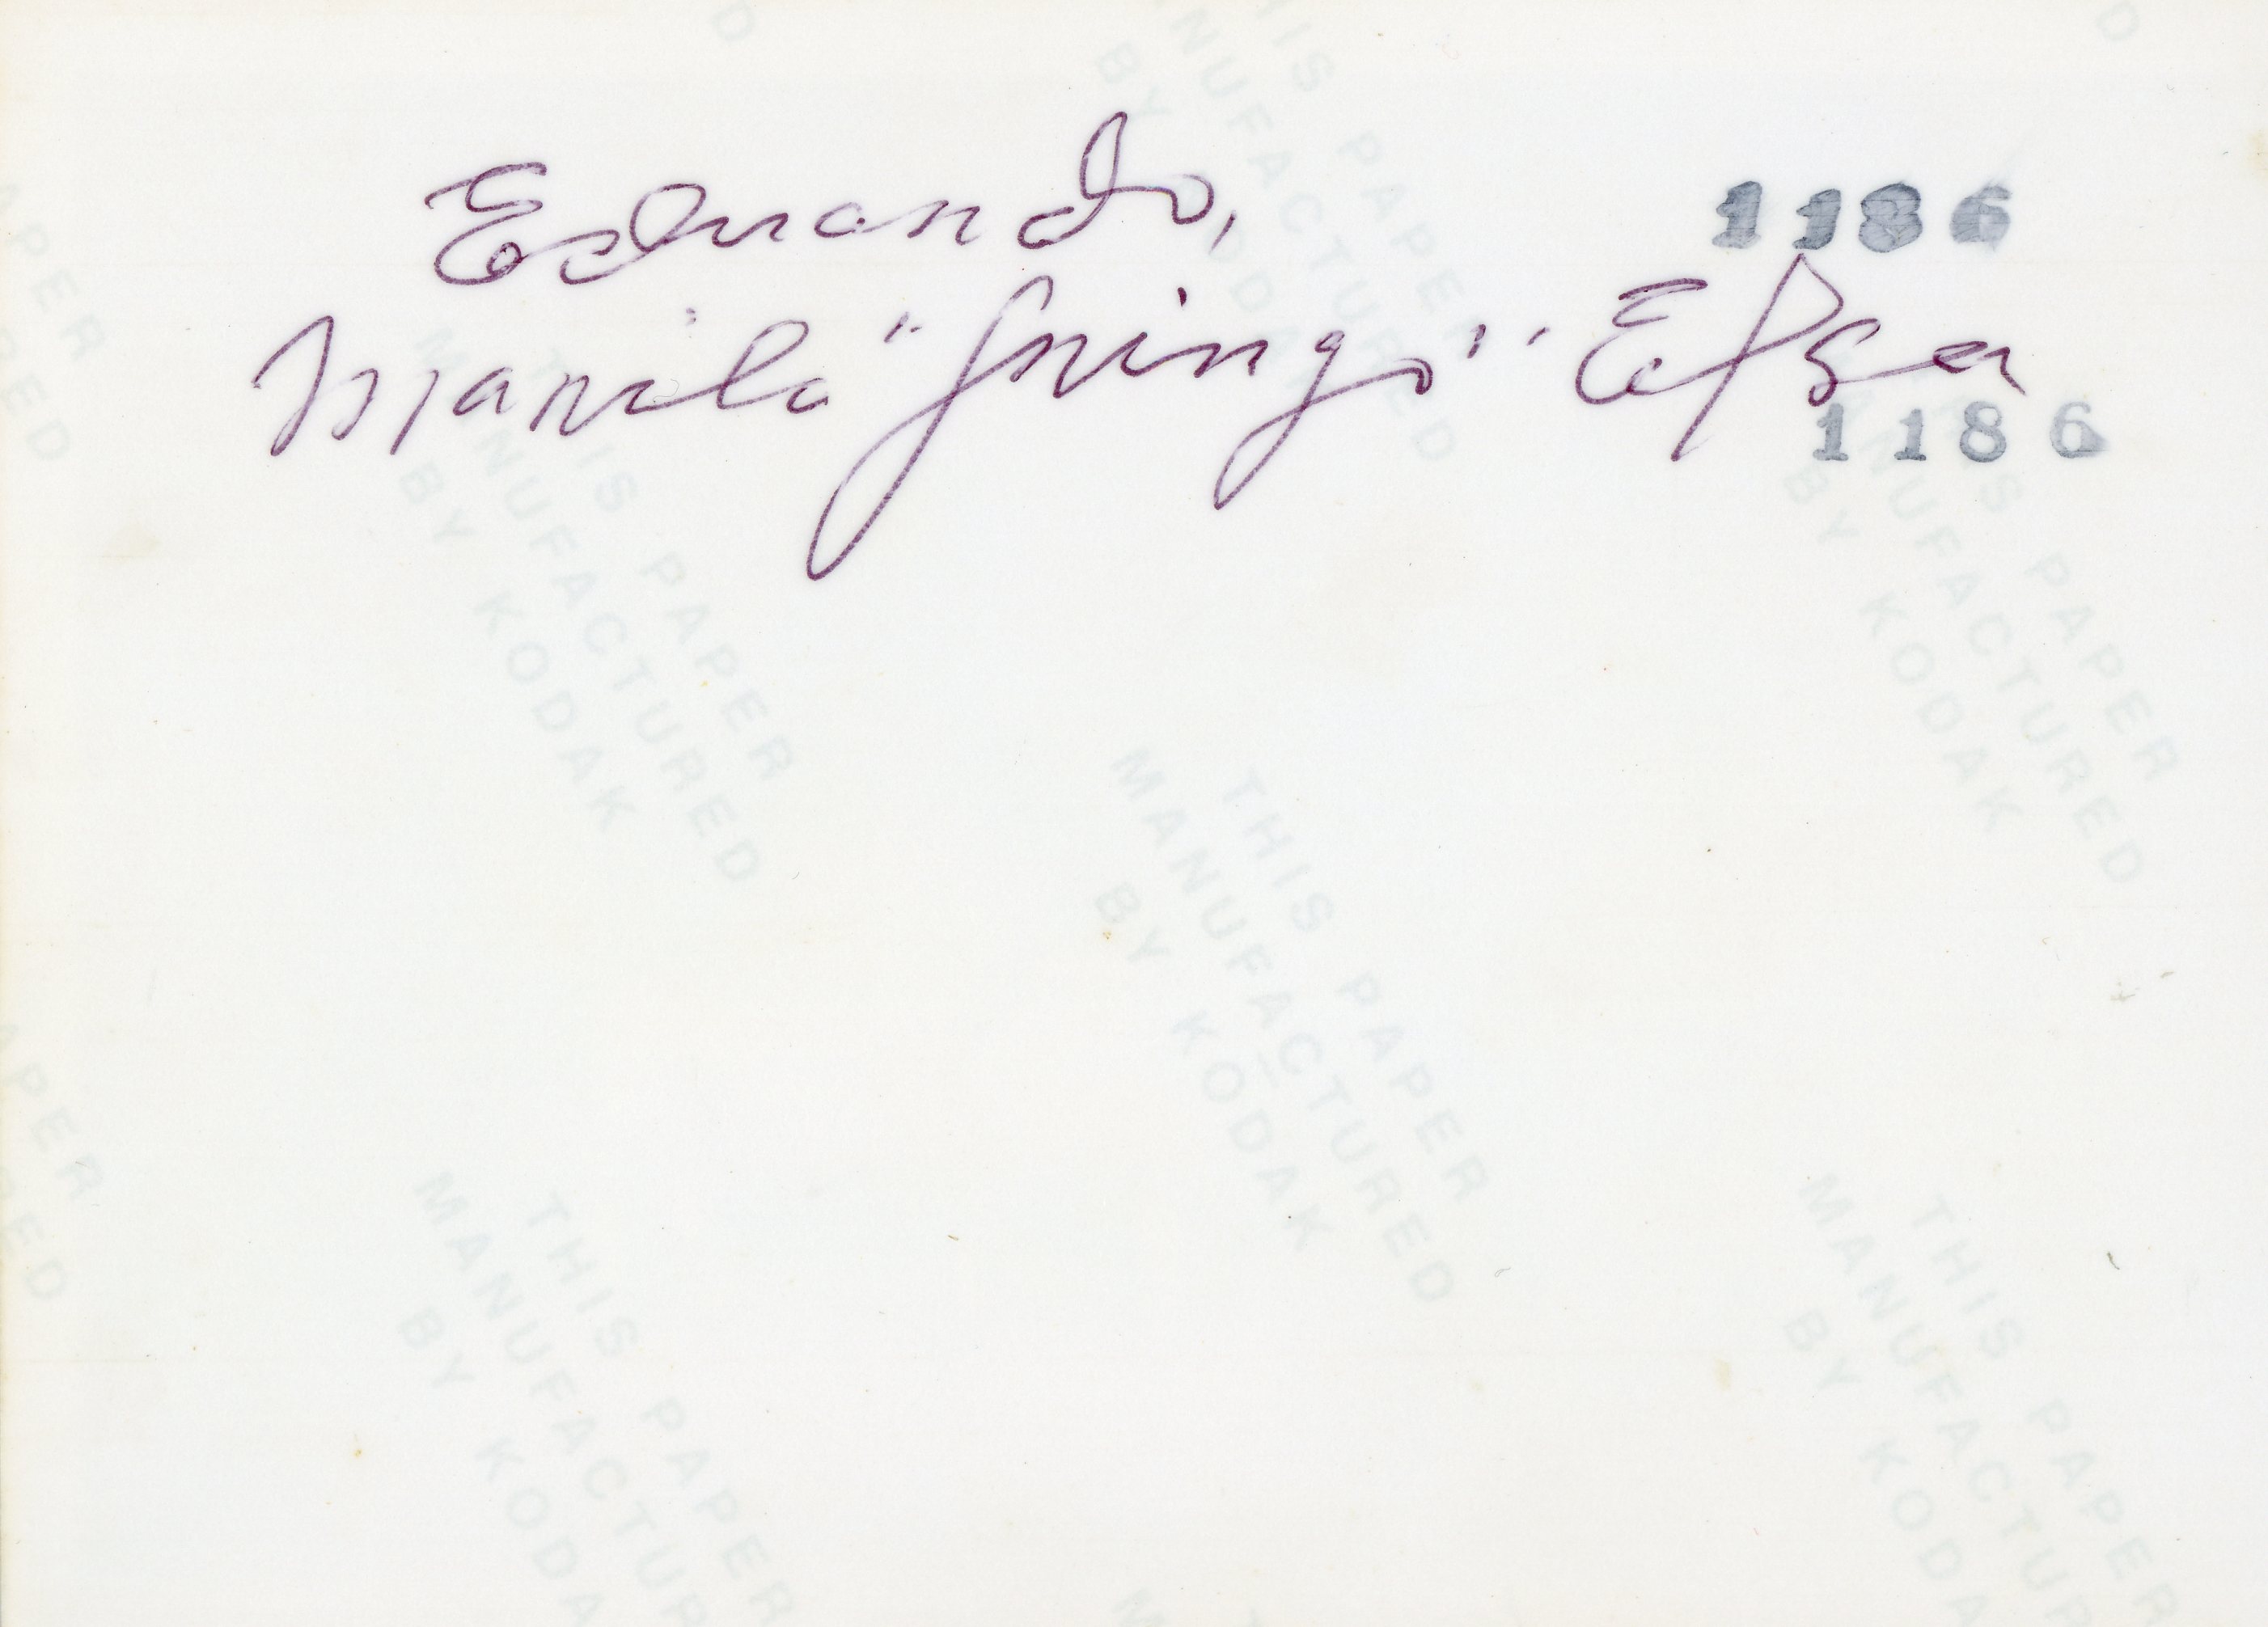 Eduardo,
1186
Mariela "Gringo" Efsa
1186
THIS PAPER
MANUFACTURED
BY KODAK
THIS PAPER
MANUFACTURED
BY KODAK
THIS PAPER
MANUFACTURED
BY KODAK
THIS PAPER
MANUFACTURED
BY KODAK
THIS PAPER
MANUFACTURED
BY KODAK
THIS PAPER
MANUFACTURED
BY KODAK